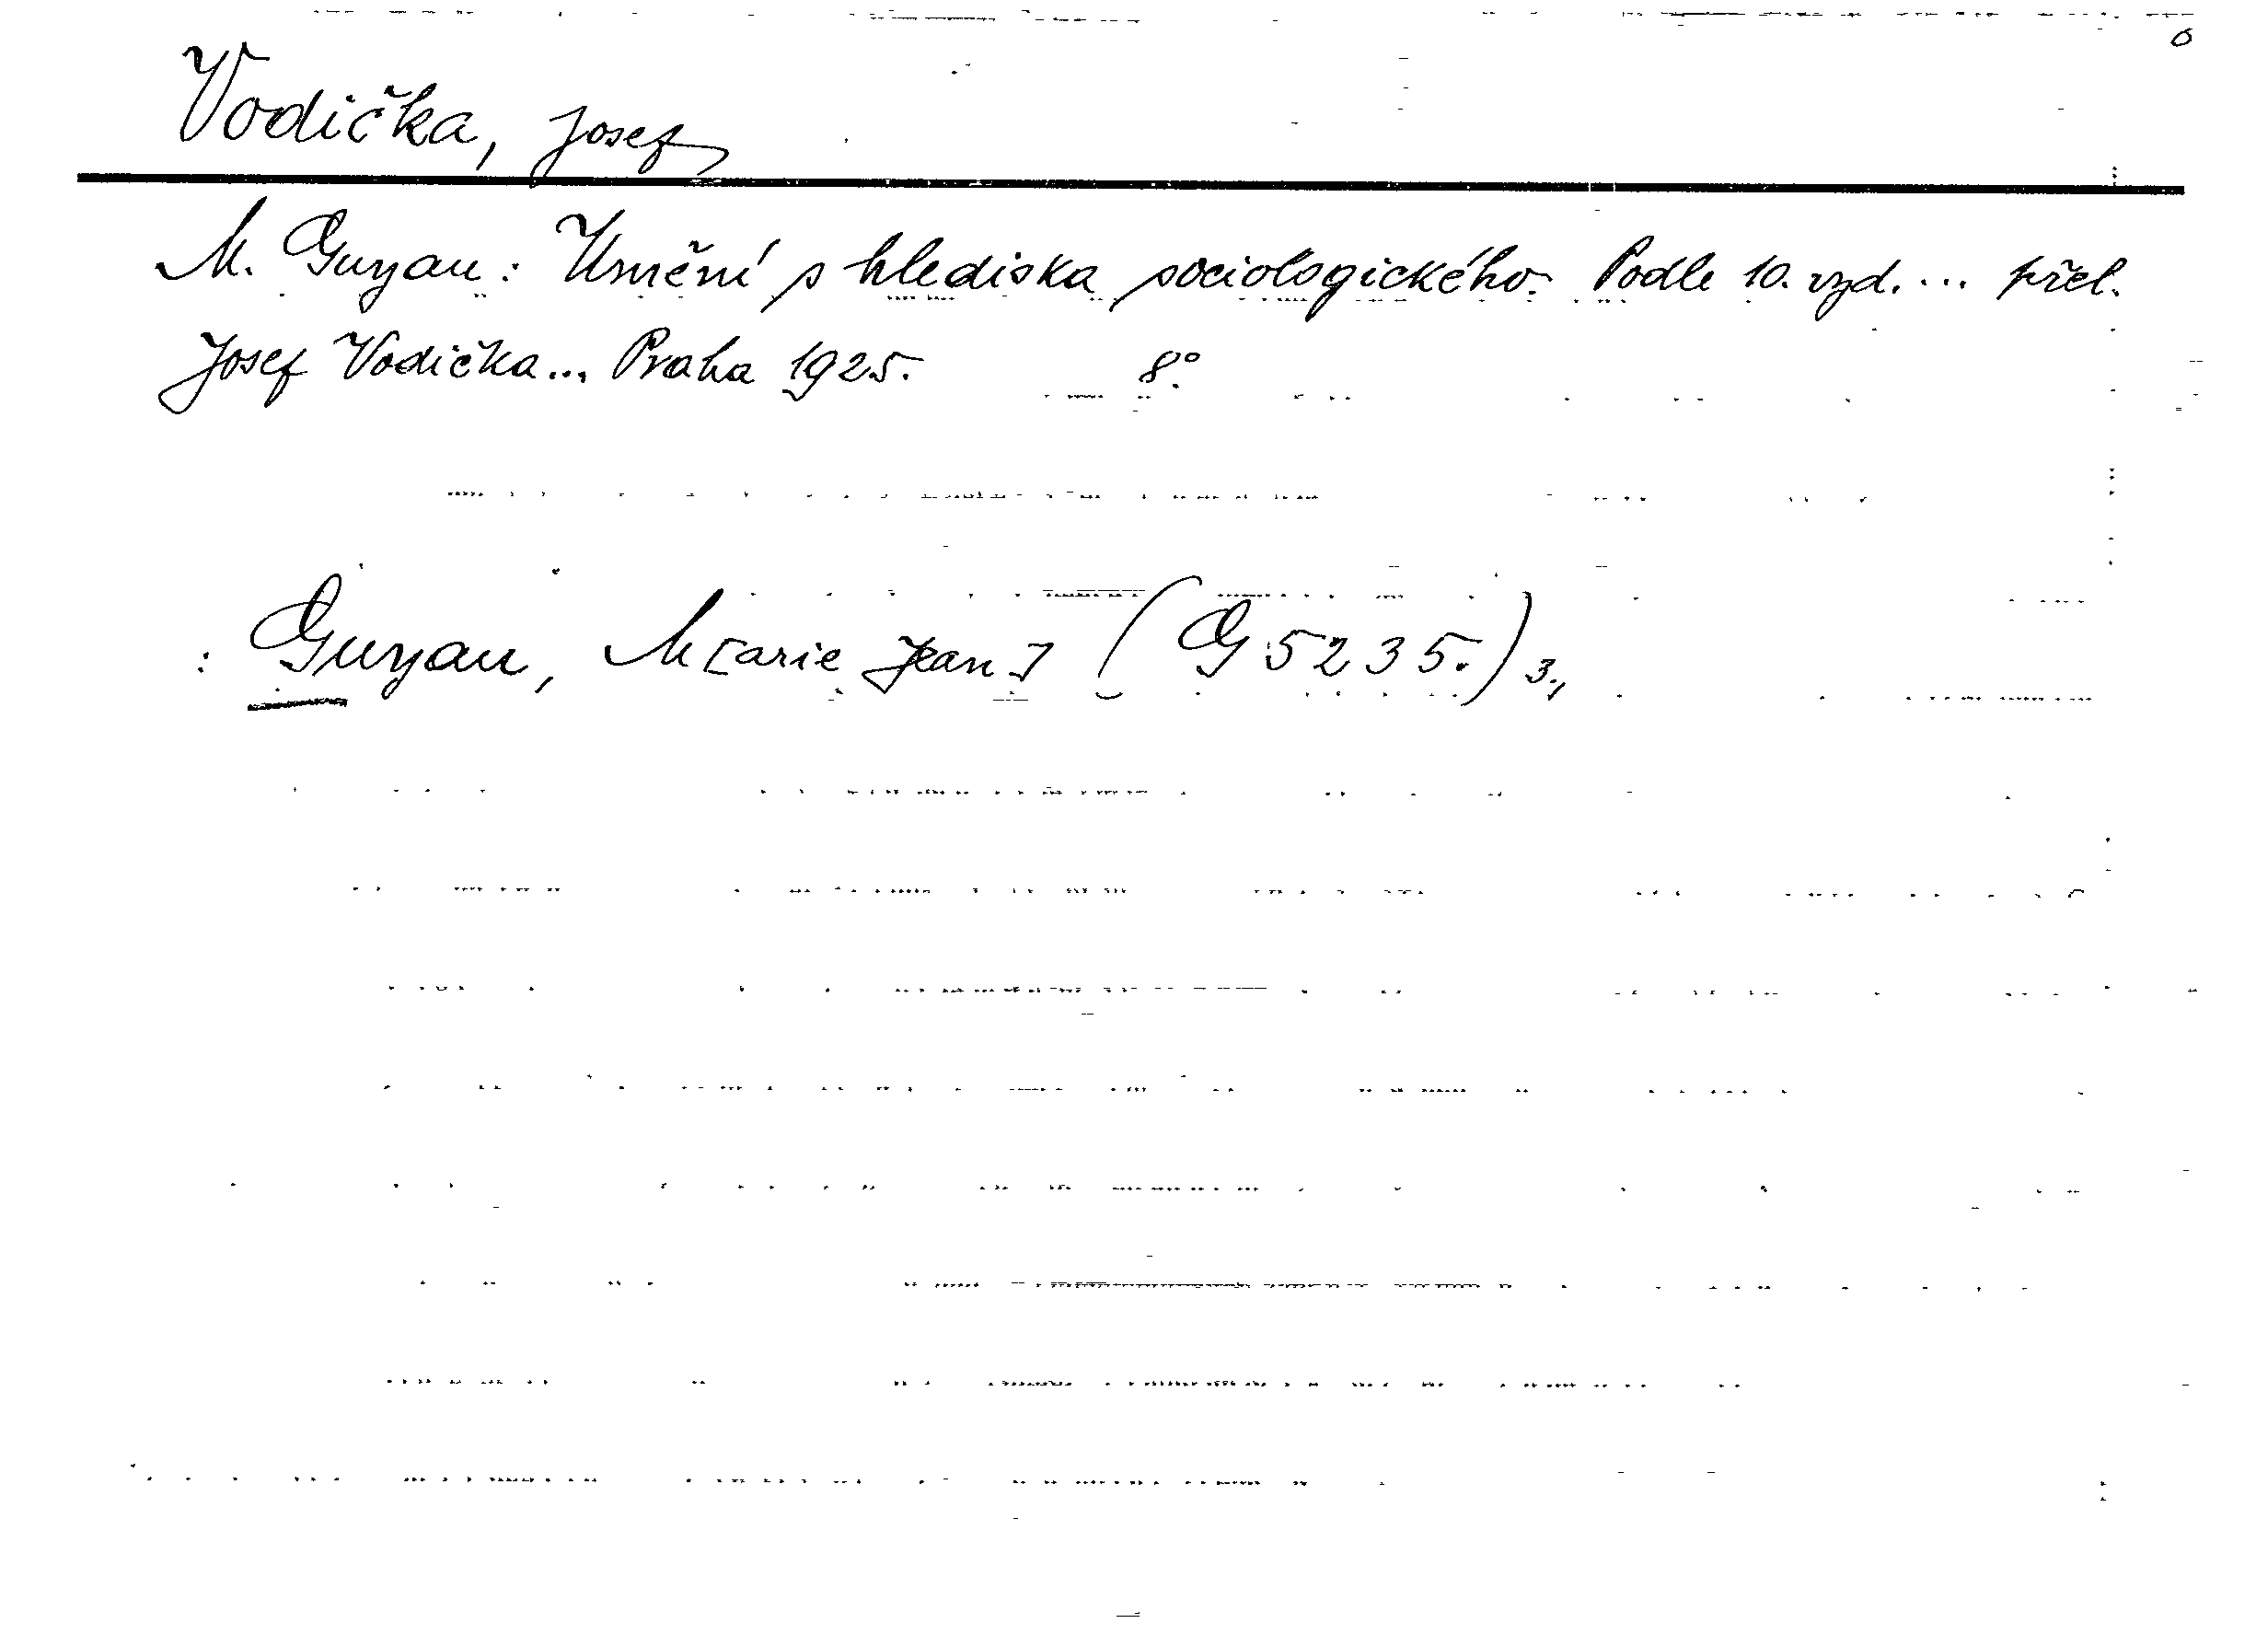 Vodička, Josef
M. Guyau: Umění s hlediska sociologického. Podle 10. vyd. ... přel.
Josef Vodička... Praha 1925. 8°.
: Guyau, M[arie Jean] (G 5235.) 3.,